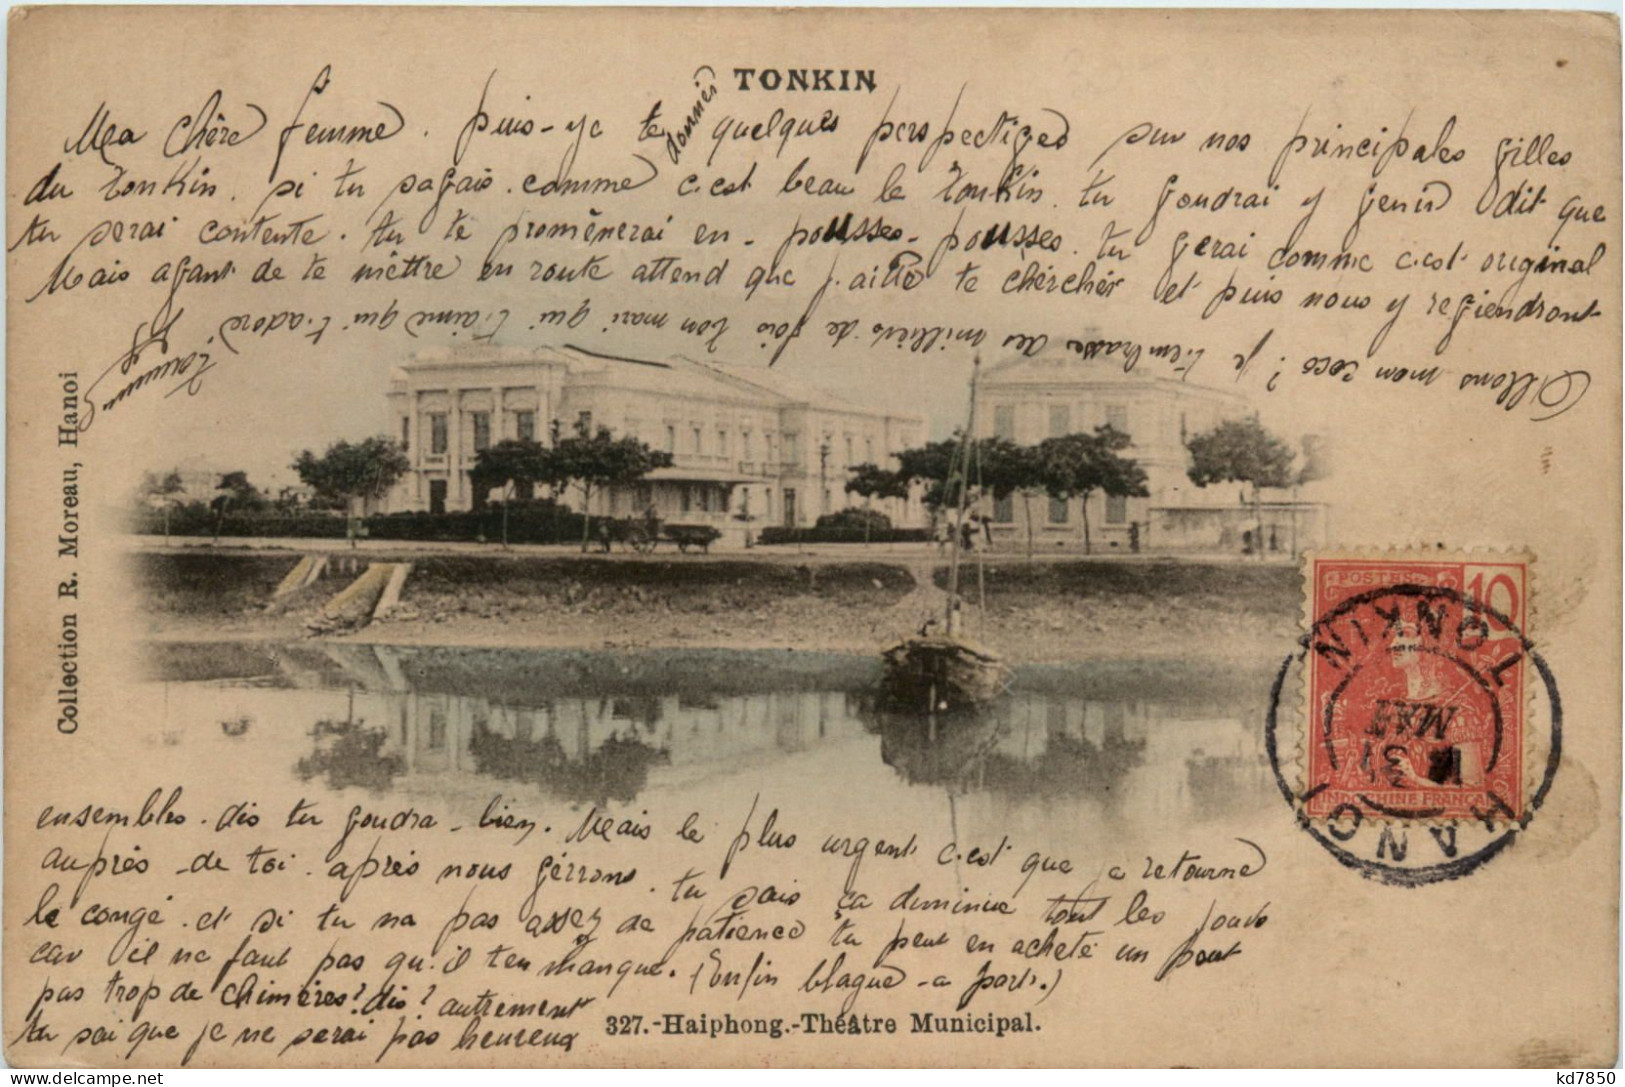 TONKIN
Ma chère femme. puis-ye te donnér quelques perspectiges sur nos principales gilles
du tonkin. si tu sagais. comme c.est beau le tonkin. tu goudrai y genir dit que
tu serai contente. tu te promènerai en - pousse-pousses. tu gerai comme c.est original
Mais agant de te mèttre en route attend que j.aille te chèrchér et puis nous y regiendront
Allons mon coco ? je t.embrasse des milliers de fois ton mari qui t.aime qui t.adore
Collection R. Moreau, Hanoi
POSTES 10
INDOCHINE FRANÇAISE
TONKIN
31
MAI
HANOI
ensembles. dis tu goudra-bien. Mais le plus urgent c.est que je retourne
auprés-de toi. aprés nous gérrons. tu sais ça diminue tout les jours
le congé. et si tu na pas assez de patience tu peut en acheté un peut
car il ne faut pas qu.il t'en manque. (Enfin blague-a part.)
pas trop de chimères? dis? autrement
tu sai que je ne serai pas heureux
327.-Haiphong.-Théâtre Municipal.
kd7850